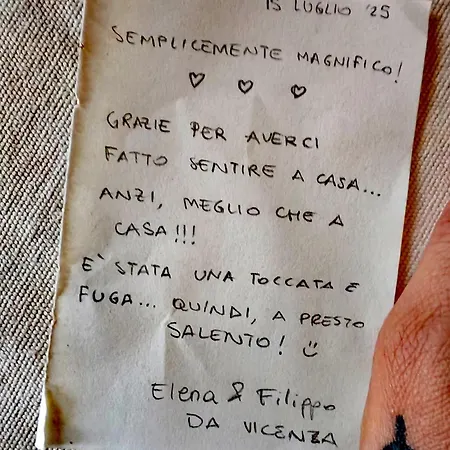 15 LUGLIO '25
SEMPLICEMENTE MAGNIFICO!
GRAZIE PER AVERCI
FATTO SENTIRE A CASA...
ANZI, MEGLIO CHE A
CASA!!!
E` STATA UNA TOCCATA E
FUGA... QUINDI, A PRESTO
SALENTO!
Elena & Filippo
DA VICENZA